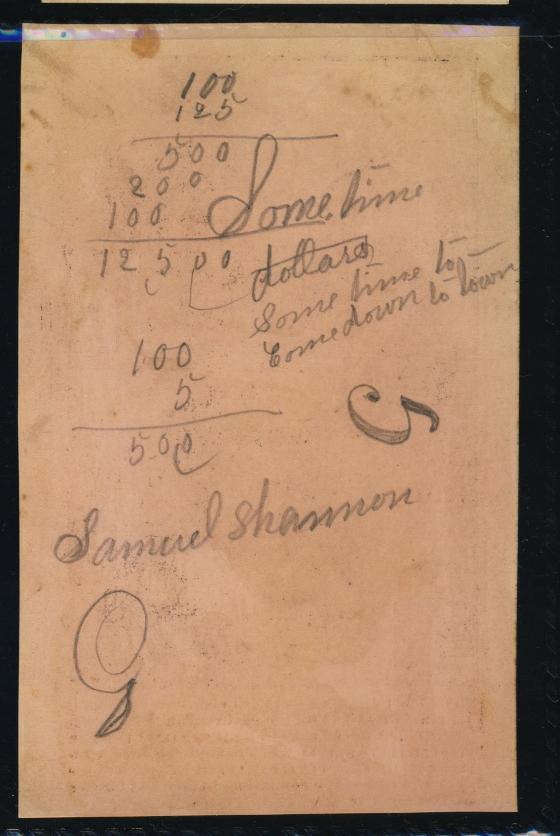 100
125
500
200
100
12500
Some time
dollars
Some time to
Come down to town
100
5
500
Samuel Shannon